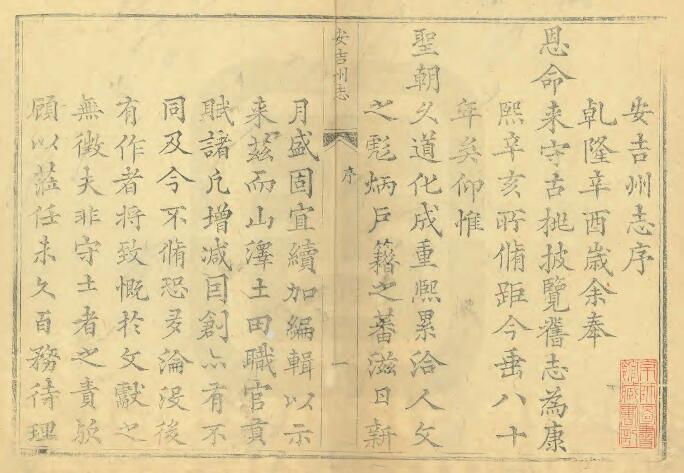 安吉州志序
乹隆辛酉歲余奉
恩命来守古桃披覽舊志為康
熙辛亥所脩距今垂八十
年矣仰惟
聖朝久道化成重熙累洽人文
之彪炳户籍之蕃滋日新
安吉州志
序
一
月盛固宜續加編輯以示
来兹而山澤土田職官貢
賦諸凡增減因創亦有不
同及今不脩恐多淪没後
有作者将致慨於文獻之
無徵夫非守土者之責歟
顧以蒞任未久百務待理